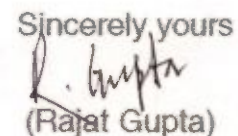 Sincerely yours
R. Gupta
(Rajat Gupta)